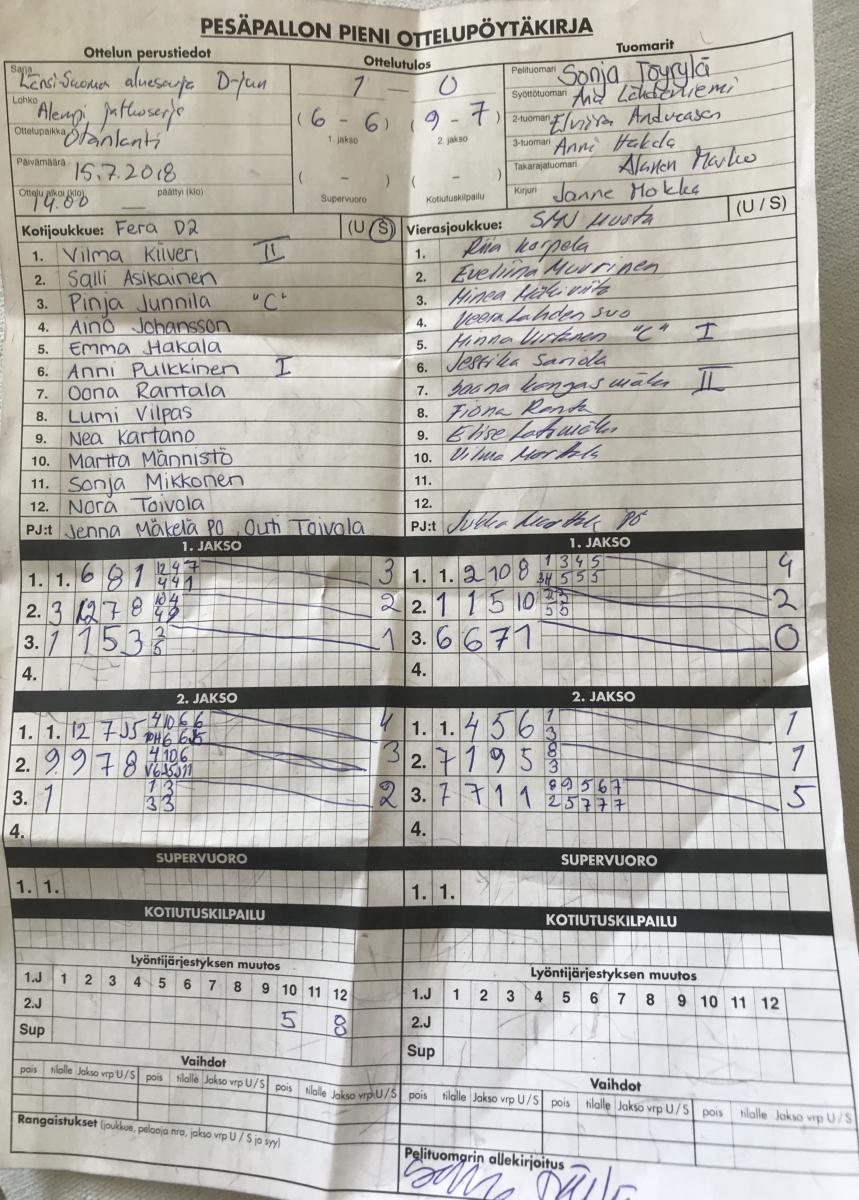 PESÄPALLON PIENI OTTELUPÖYTÄKIRJA
Ottelun perustiedot
Sarja Länsi-Suomen aluesarja D-jun
Lohko Alempi jatkosarja
Ottelupaikka Otanlahti
Päivämäärä 15.7.2018
Ottelu alkoi (klo) 14.00 päättyi (klo) —
Ottelutulos
1 — 0
(6 - 6) (9 - 7)
1. jakso 2. jakso
( - ) ( - )
Supervuoro Kotiutuskilpailu
Tuomarit
Pelituomari Sonja Töyrylä
Syöttötuomari Lähdeniemi
2-tuomari Elviira Andreasen
3-tuomari Anni Hakala
Takarajatuomari Alanen Marko
Kirjuri Janne Mokka
Kotijoukkue: Fera D2 (U/S)
1. Vilma Kiiveri II
2. Salli Asikainen
3. Pinja Junnila "C"
4. Aino Johansson
5. Emma Hakala
6. Anni Pulkkinen I
7. Oona Rantala
8. Lumi Vilpas
9. Nea Kartano
10. Martta Männistö
11. Sonja Mikkonen
12. Nora Toivola
PJ:t Jenna Mäkelä PO, Outi Toivola
Vierasjoukkue: SMN Musta (U / S)
1. Riia Korpela
2. Eveliina Muurinen
3. Minea Mäkiviita
4. Veera Lahden suo
5. Minna Virtanen "C" I
6. Jessika Sariola
7. Saana Kangasmäki II
8. Fiona Ranta
9. Elise Latvamäki
10. Vilma Marttala
11.
12.
PJ:t Jukka Marttala PO
1. JAKSO
1. 1. 6 8 1 12 4 7 3
4 4 1
2. 3 12 7 8 10 4 2
4 9
3. 1 1 5 3 2 1
5
4.
1. JAKSO
1. 1. 2 10 8 1 3 4 5 4
5 5 5
2. 1 1 5 10 2 3 2
5 5
3. 6 6 7 1 0
4.
2. JAKSO
1. 1. 12 7 4 10 6 6 4
2. 9 9 7 8 4 10 6 3
3. 1 1 3 2
3 3
4.
2. JAKSO
1. 1. 4 5 6 1 1
3
2. 7 1 9 5 8 1
3
3. 7 7 1 1 8 9 5 6 7 5
2 5 7 7 7
4.
SUPERVUORO
1. 1.
SUPERVUORO
1. 1.
KOTIUTUSKILPAILU
KOTIUTUSKILPAILU
Lyöntijärjestyksen muutos
1.J 1 2 3 4 5 6 7 8 9 10 11 12
2.J 5 8
Sup
Lyöntijärjestyksen muutos
1.J 1 2 3 4 5 6 7 8 9 10 11 12
2.J
Sup
Vaihdot
pois tilalle Jakso vrp U / S pois tilalle Jakso vrp U / S pois tilalle Jakso vrp U / S
Vaihdot
pois tilalle Jakso vrp U / S pois tilalle Jakso vrp U / S pois tilalle Jakso vrp U / S
Rangaistukset (joukkue, pelaaja nro, jakso vrp U / S ja syy)
Pelituomarin allekirjoitus